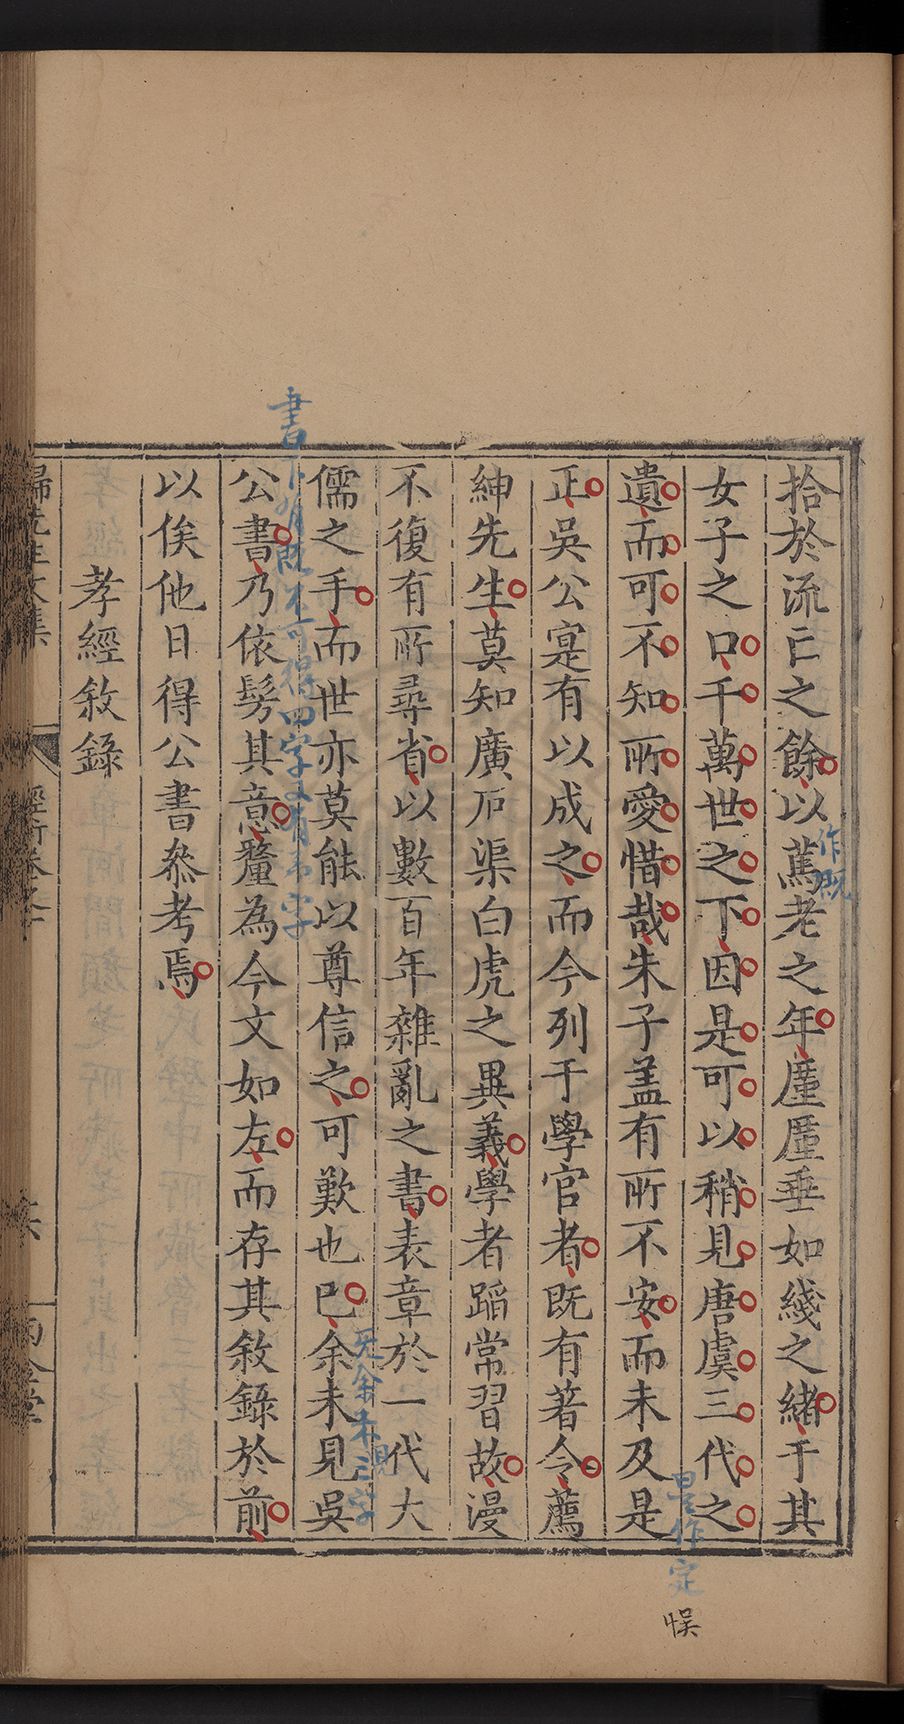 拾於流亡之餘以篤老之年廑廑垂如綫之緒于其
女子之口千萬世之下因是可以稍見唐虞三代之
遺而可不知所愛惜哉朱子葢有所不安而未及是
正吳公寔有以成之而今列于學官者既有著令薦
紳先生莫知廣石渠白虎之異義學者蹈常習故漫
不復有所尋省以數百年雜亂之書表章於一代大
儒之手而世亦莫能以尊信之可歎也巳余未見吳
公書乃依髣其意釐為今文如左而存其敘錄於前
以俟他日得公書叅考焉
孝經敘錄
作既
是作定
悞